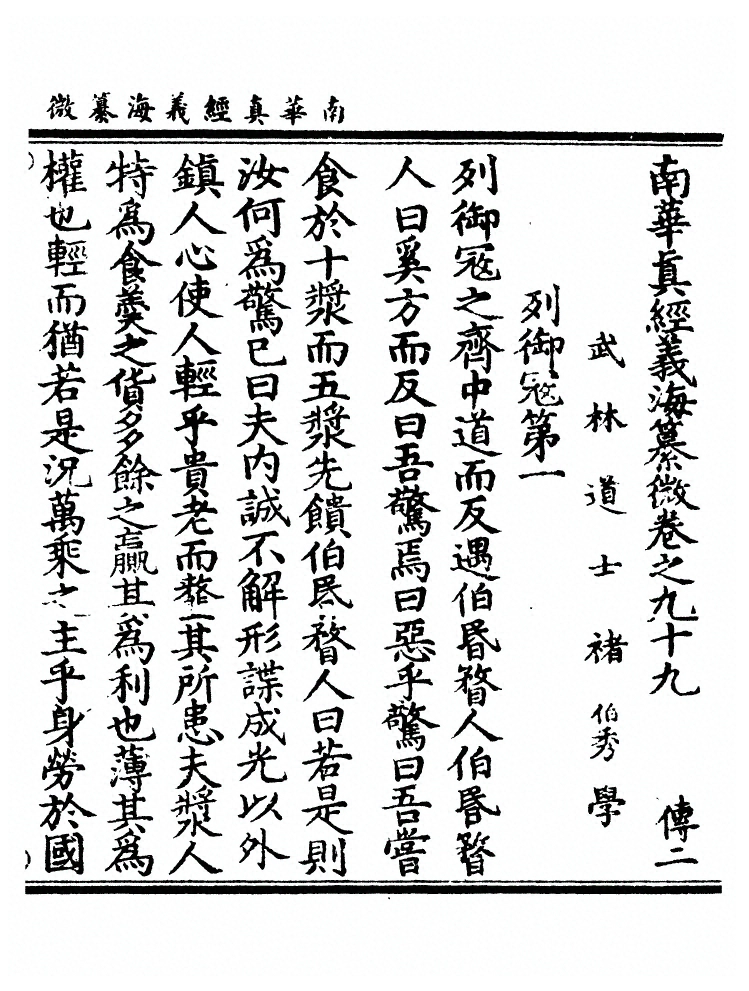 南華真經義海纂微
南華真經義海纂微卷之九十九 傳二
武林道士褚伯秀學
列御寇第一
列御寇之齊中道而反遇伯昏瞀人伯昏瞀
人曰奚方而反曰吾驚焉曰惡乎驚曰吾嘗
食於十漿而五漿先饋伯昏瞀人曰若是則
汝何為驚已曰夫內誠不解形諜成光以外
鎮人心使人輕乎貴老而𩐋其所患夫漿人
特為食羹之貨多餘之贏其為利也薄其為
權也輕而猶若是況萬乘之主乎身勞於國